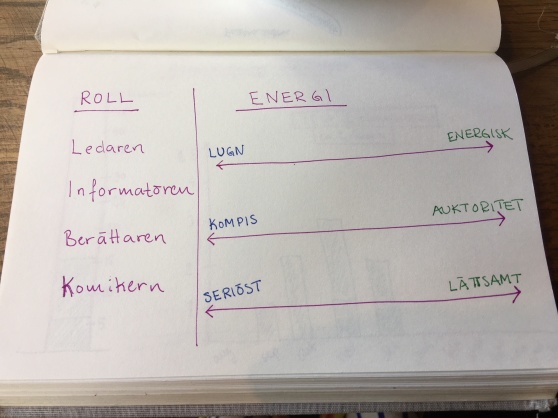 ROLL
ENERGI
Ledaren
LUGN
ENERGISK
Informatören
KOMPIS
AUKTORITET
Berättaren
Komikern
SERIÖST
LÄTTSAMT